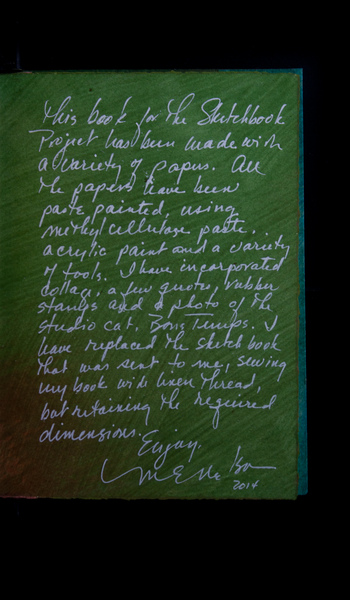 This book for the Sketchbook
Project has been made with
a variety of papers. All
the papers have been
paste painted, using
methyl cellulose paste,
acrylic paint and a variety
of tools. I have incorporated
collage, a few quotes, rubber
stamps and a photo of the
studio cat, Boris
I
have replaced the sketchbook
that was sent to me, sewing
my book with linen thread,
but retaining the required
dimensions.
Enjoy.
2014